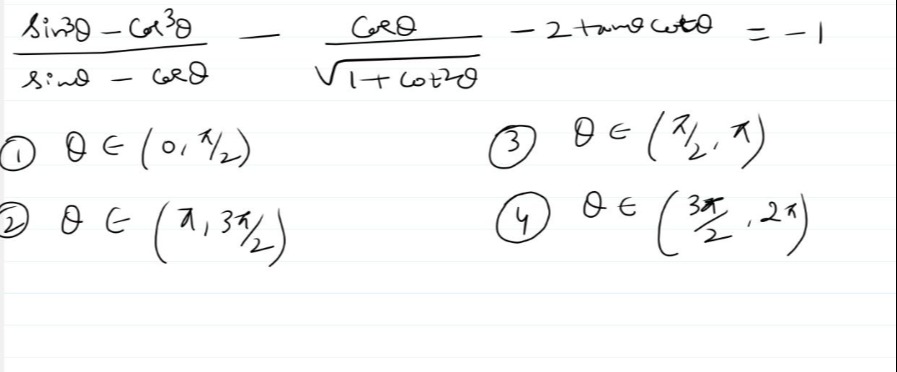 (sin³θ – cos³θ)/(sinθ – cosθ) – cosθ/√(1 + cot²θ) – 2 tanθ cotθ = –1
① θ ∈ (0, π/2) ③ θ ∈ (π/2, π)
② θ ∈ (π, 3π/2) ④ θ ∈ (3π/2, 2π)